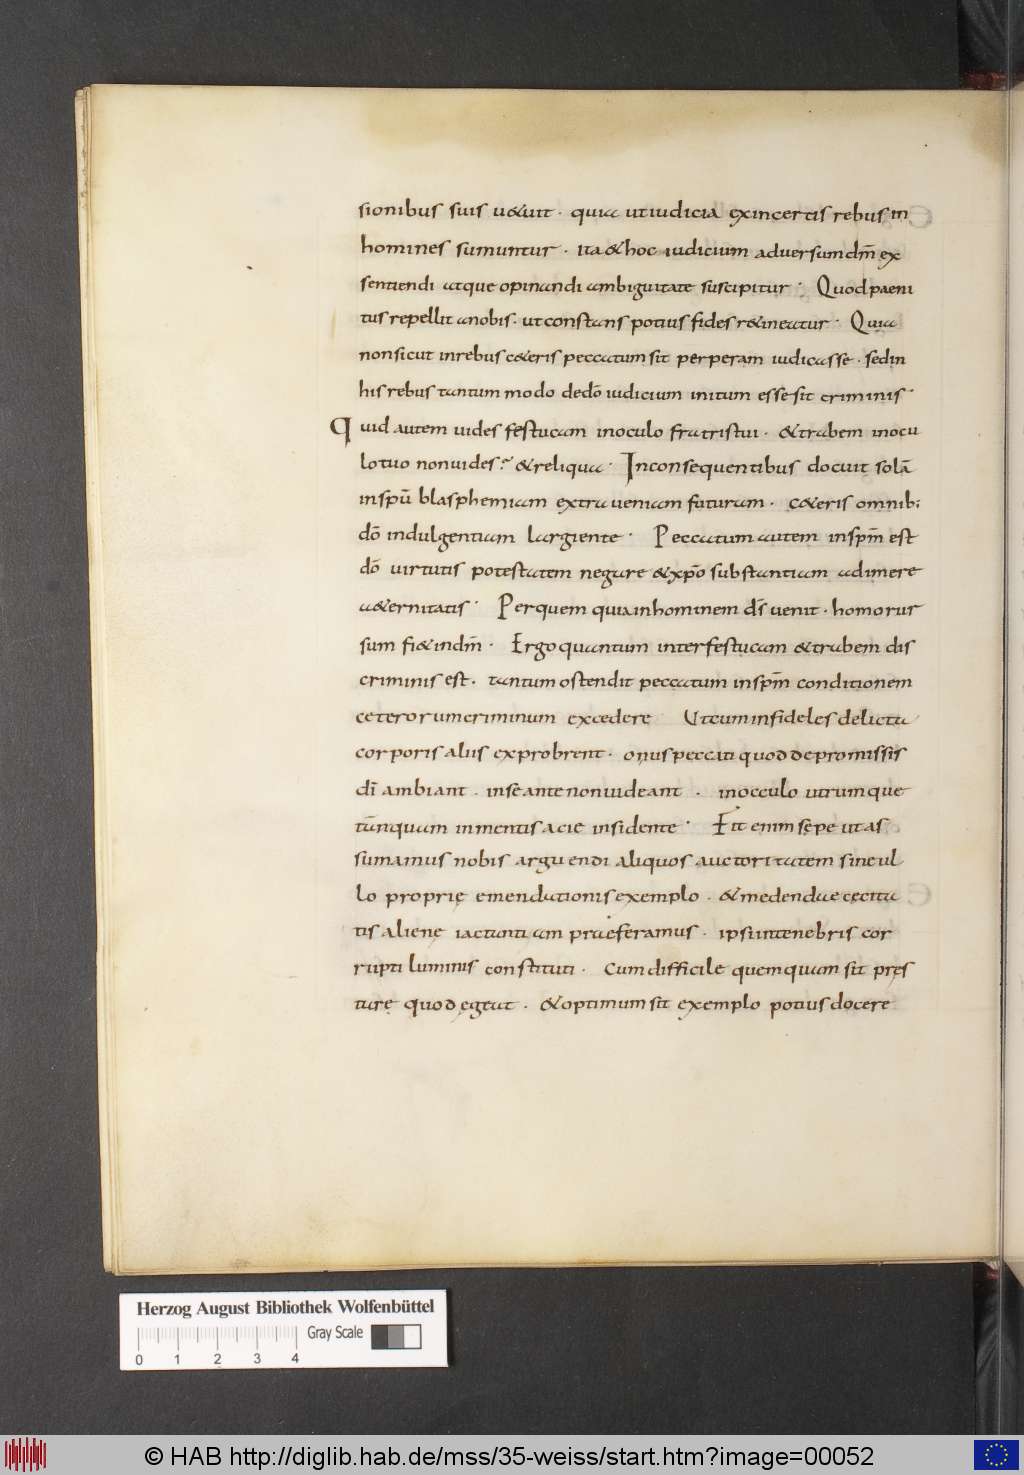 sionibus suis u&uit · quia ut iudicia ex incertis rebus in
homines sumuntur · ita & hoc iudicium aduersum dm̄ ex
sentiendi atque opinandi ambiguitate suscipitur · Quod paeni
tus repellit a nobis · ut constans potius fides r&ineatur · Quia
non sicut in rebus c&eris peccatum sit perperam iudicasse · sed in
his rebus tantum modo de dō iudicium initum esse sit criminis ·
Quid autem uides festucam in oculo fratris tui · & trabem in ocu
lo tuo non uides ? & reliqua · In consequentibus docuit solā
in spū blasphemiam extra ueniam futuram · c&eris omnib;
dō indulgentiam largiente · Peccatum autem in spm̄ est
dō uirtutis potestatem negare & xp̄o substantiam adimere
a&ernitatis · Per quem quia in hominem ds̄ uenit · homo rur
sum fi& in dm̄ · Ergo quantum inter festucam & trabem dis
criminis est · tantum ostendit peccatum in spm̄ conditionem
ceterorum criminum excedere Ut cum infideles delicta
corporis aliis exprobrent · onus peccati quod de promissis
dī ambiant · in se ante non uideant · in occulo utrumque
tanquam in mentis acie insidente · Fit enim sepe ut as
sumamus nobis arguendi aliquos auctoritatem sine ul
lo proprię emendationis exemplo · & medendae cęcita
tis alienę iactantiam praeferamus · ipsi in tenebris cor
rupti luminis constituti · Cum difficile quemquam sit pręs
tare quod egeat · & optimum sit exemplo potius docere
Herzog August Bibliothek Wolfenbüttel
Gray Scale
0 1 2 3 4
© HAB http://diglib.hab.de/mss/35-weiss/start.htm?image=00052